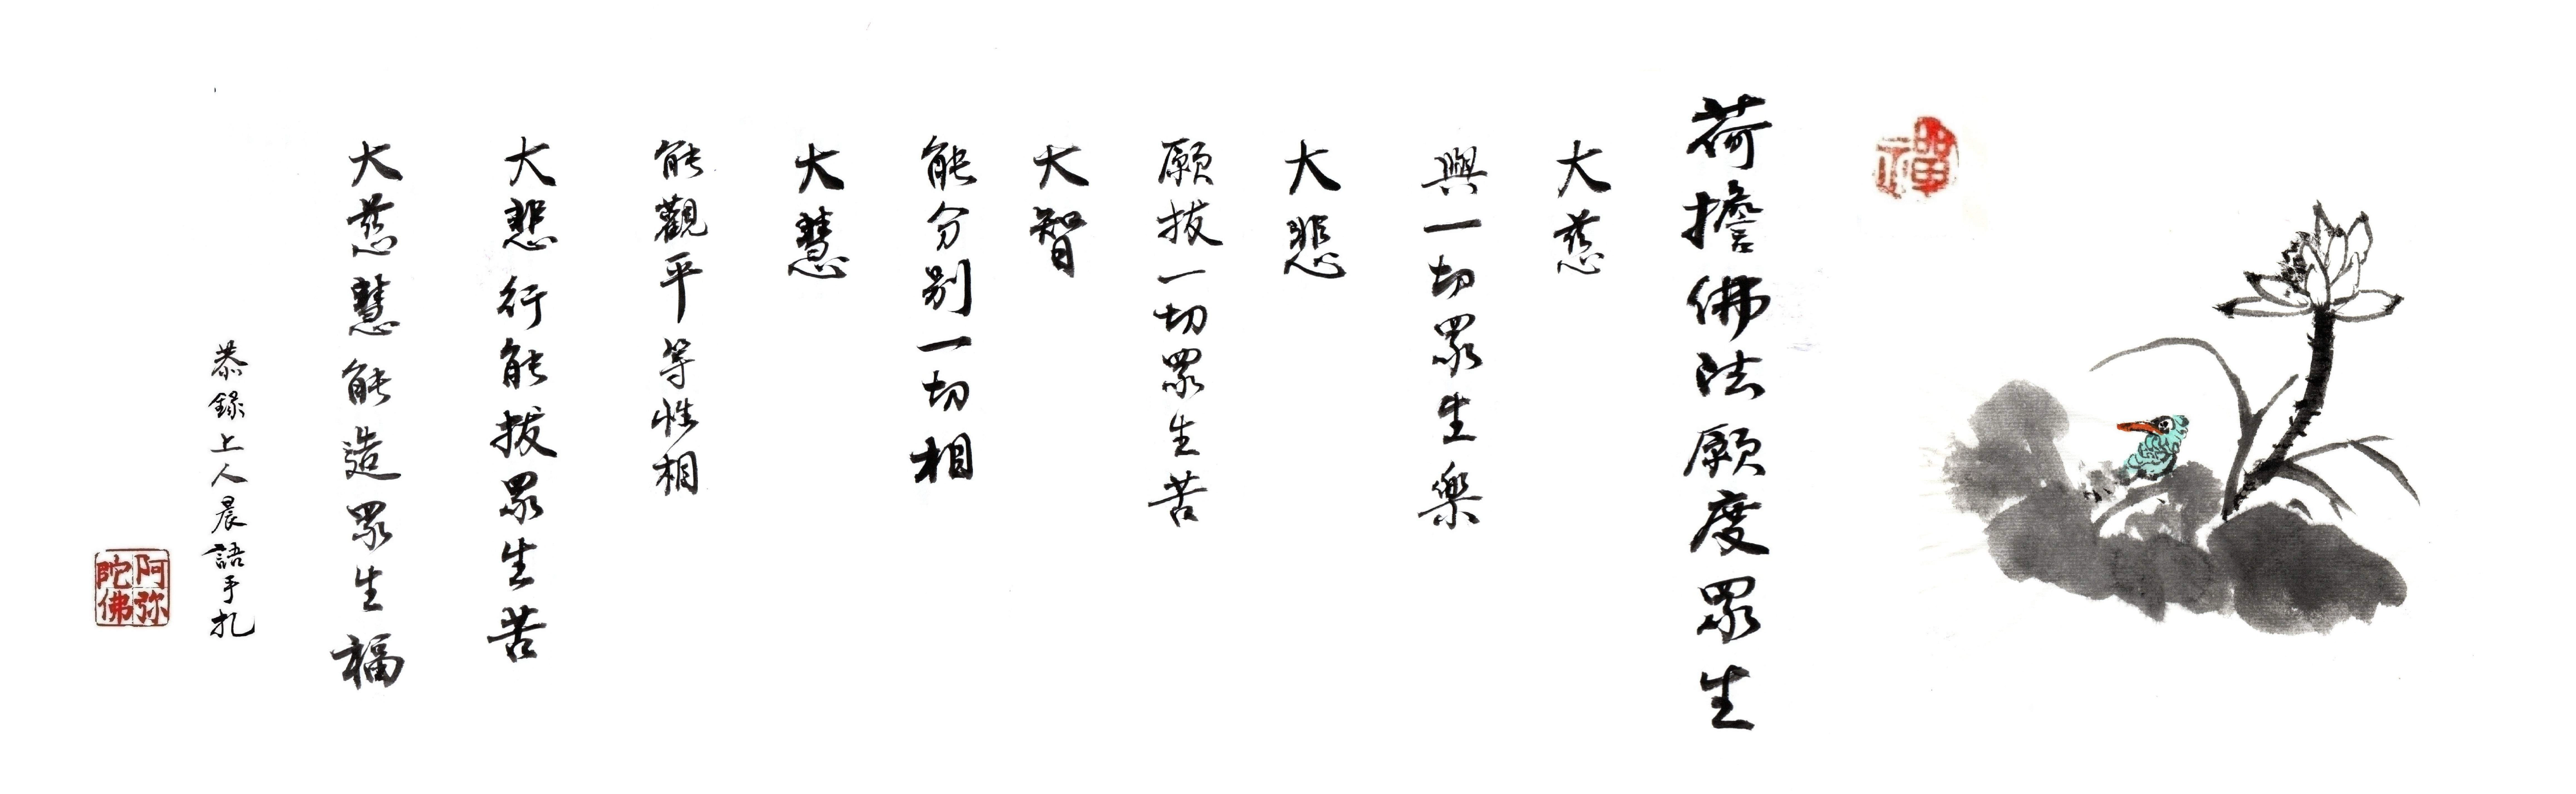 禪
荷擔佛法願度眾生
大慈
與一切眾生樂
大悲
願拔一切眾生苦
大智
能分別一切相
大慧
能觀平等性相
大悲行能拔眾生苦
大慈慧能造眾生福
恭錄上人晨語手札
阿弥
陀佛